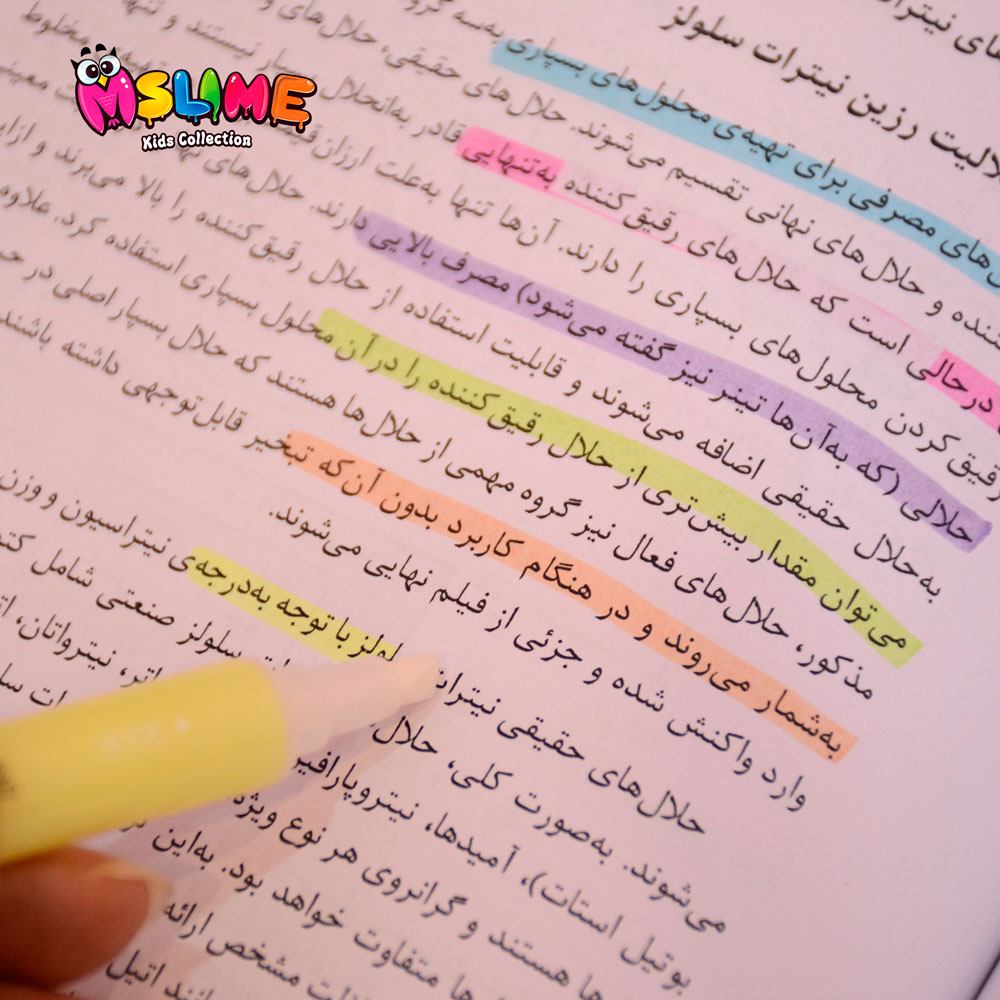 MSLIME
Kids Collection
های
رزین نیترات سلولز
مصرفی برای تهیه‌ی محلول‌های بسپاری به‌سه
و حلال‌های نهانی تقسیم می‌شوند. حلال‌های حقیقی، حلال‌های
درحالی است که حلال‌های رقیق کننده به‌تنهایی قادر به‌انحلال بسپار نیستند و تنها
رقیق کردن محلول‌های بسپاری را دارند. آن‌ها تنها به‌علت ارزان مخلوط
حلالی (که به‌آن‌ها تینر نیز گفته می‌شود) مصرف بالایی دارند. حلال‌های
به‌حلال حقیقی اضافه می‌شوند و قابلیت استفاده از حلال رقیق‌کننده را بالا می‌برند و
می‌توان مقدار بیش‌تری از حلال رقیق‌کننده را در آن محلول بسپاری استفاده کرد. علاوه
مذکور، حلال‌های فعال نیز گروه مهمی از حلال‌ها هستند که حلال بسپار اصلی در
به‌شمار می‌روند و در هنگام کاربرد بدون آن‌که تبخیر قابل‌توجهی داشته باشند
وارد واکنش شده و جزئی از فیلم نهایی می‌شوند.
حلال‌های حقیقی با توجه به‌درجه‌ی نیتراسیون و وزن
می‌شوند. به‌صورت کلی، حلال سلولز صنعتی شامل
بوتیل استات)، آمیدها، نیترواتان،
ها هستند و گرانروی هر نوع
متفاوت خواهد بود. به‌این
مشخص ارائه
اتیل